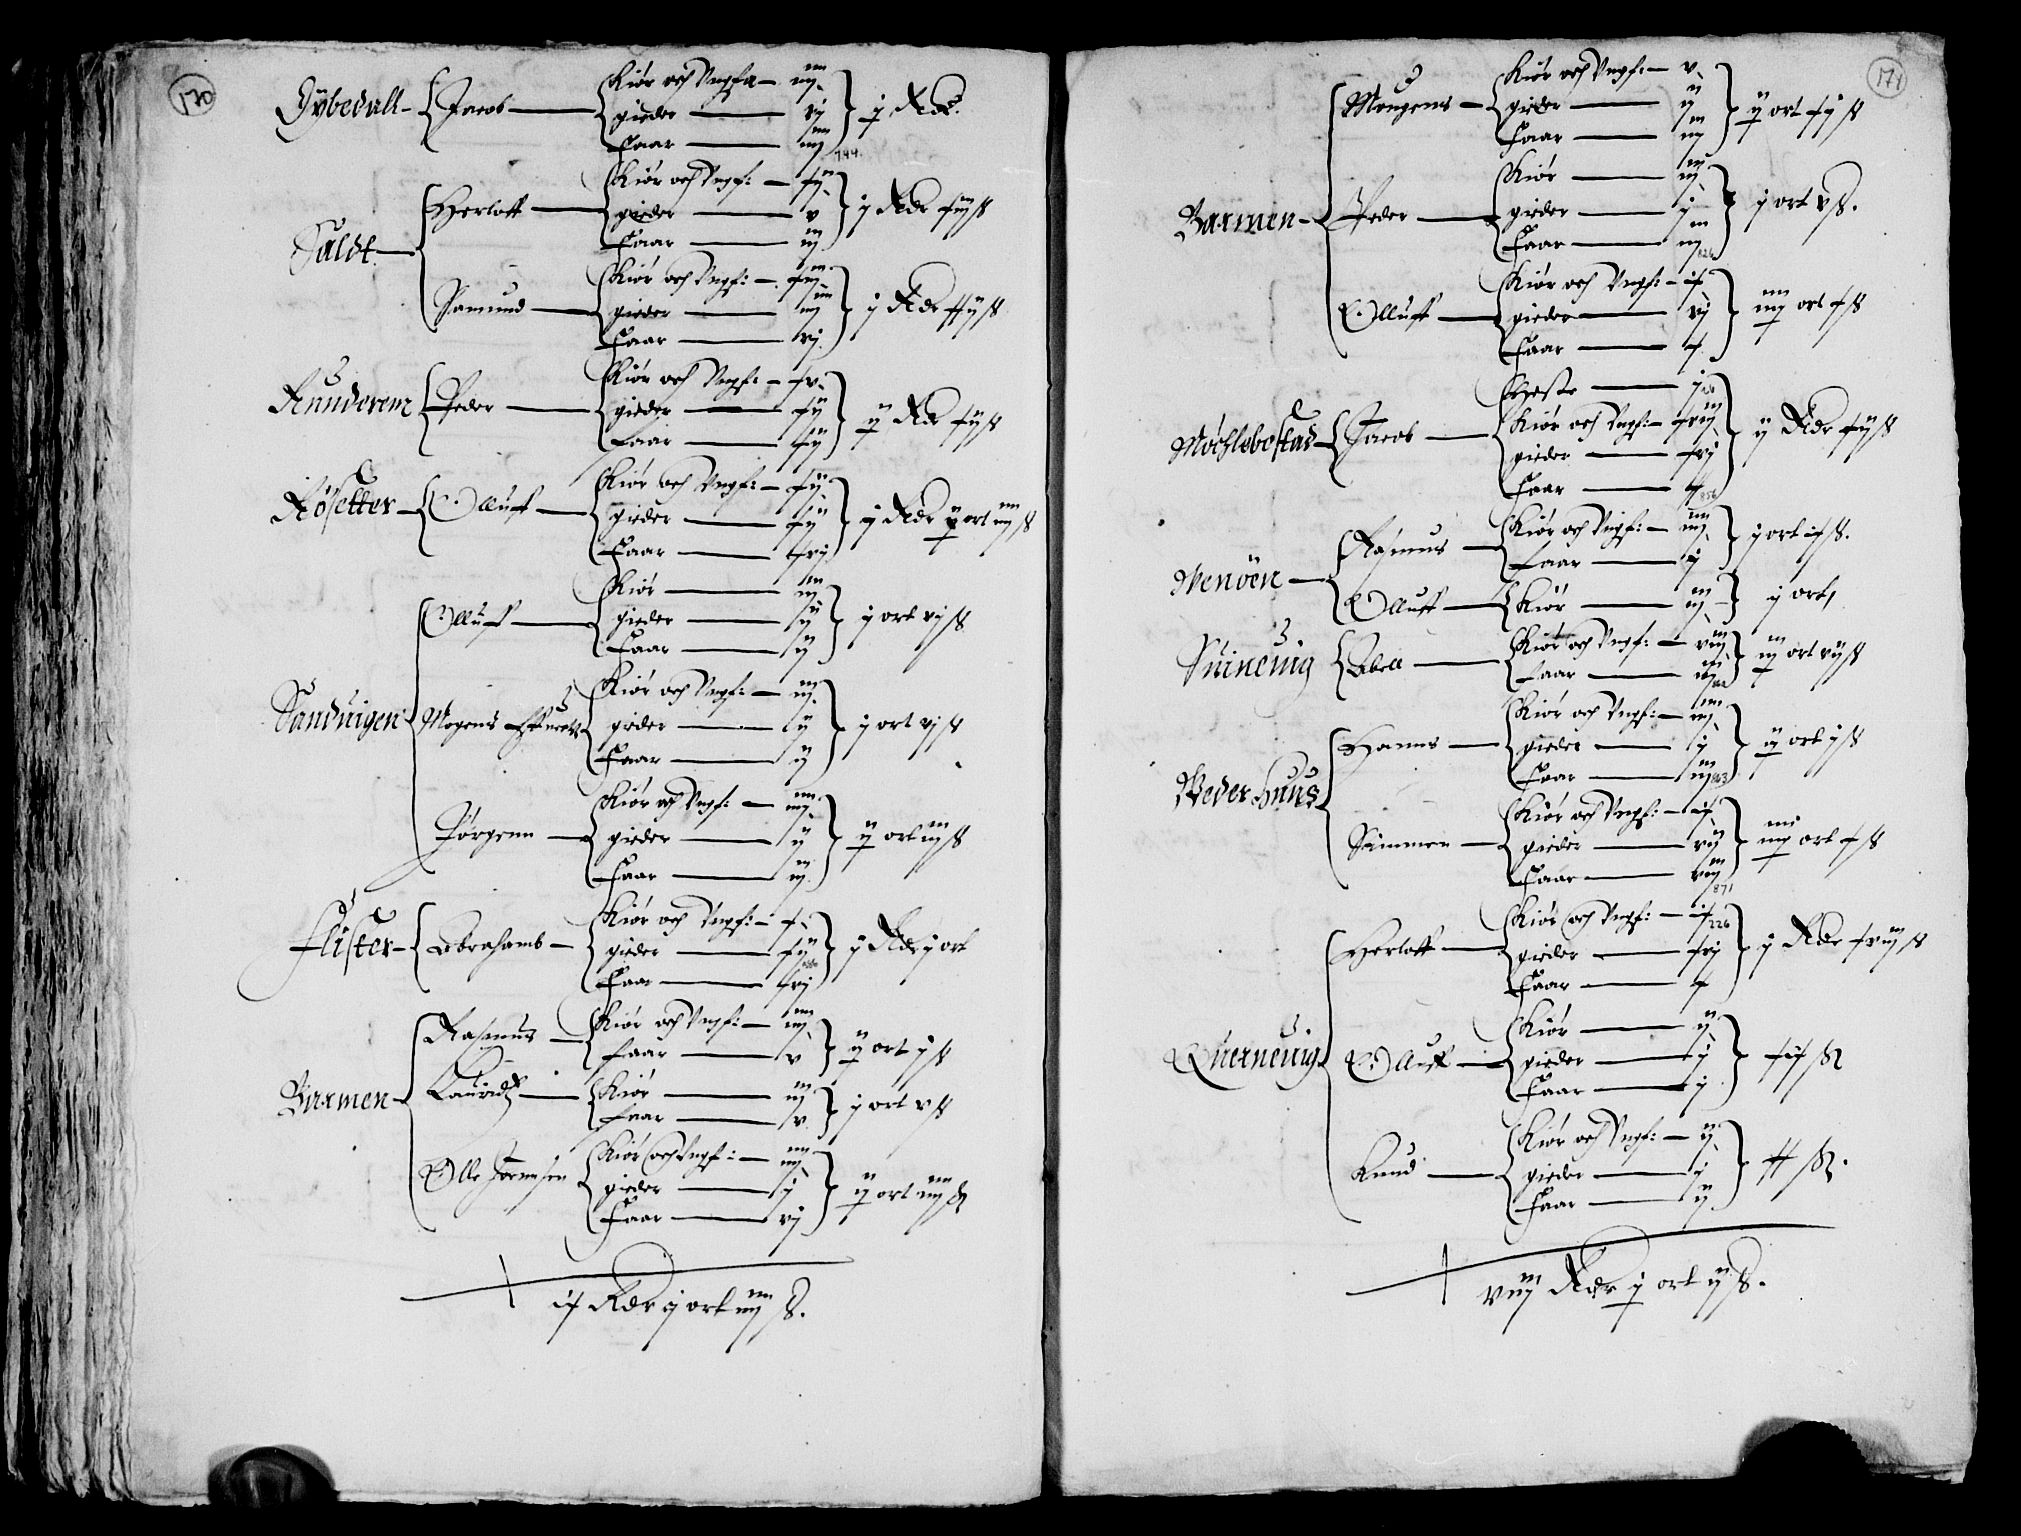 170
Dybedall - Jacob - Kiør och Vngf: - iiij
gieder - vj
Faar - iiij
j Rdr.
Saldt - Herloff - Kiør och Vngf: - xij
gieder - v
Faar - iij
j Rdr xiij ß
Samund - Kiør och Vngf: - xiij
gieder - iiij
Faar - vj
j Rdr xxij ß
Runderem - Peder - Kiør och Vngf: - xv
gieder - xij
Faar - xij
ij Rdr xij ß
Røsetter - Olluff - Kiør och Vngf: - xij
gieder - xij
Faar - xvj
j Rdr ij ort iiij ß
Sanduigen - Olluff - Kiør - iij
gieder - ij
Faar - ij
j ort vj ß
Mogens - Kiør och Vngf: - iij
gieder - ij
Faar - ij
j ort vj ß
Jørgenn - Kiør och Vngf: - iiij
gieder - ij
Faar - iij
ij ort iij ß
Flister - Abrahamb - Kiør och Vngf: - x
gieder - xij
Faar - xvj
j Rdr j ort
Barmen - Rasmus - Kiør och Vngf: - iiij
faar - v
ij ort j ß
Lauridtz - Kiør - iij
faar - v
j ort v ß
Olle Joennsen - Kiør och Vngf: - iiij
gieder - j
Faar - vj
ij ort iiij ß
ix Rdr j ort iiij ß.
171
Barmen - Mougens - Kiør och Vngf: - v
gieder - ij
Faar - iij
ij ort xij ß
Peder - Kiør - iij
gieder - j
Faar - iij
j ort v ß.
Olluff - Kiør och Vngf: - ix
gieder - vj
Faar - x
iiij ort x ß
Mochlebostad - Jacob - Heste - j
Kiør och Vngf: - xviij
gieder - xvj
Faar - x
ij Rdr xij ß
Wenöen - Rasmus - Kiør och Vngf: - iiij
Faar - j
j ort ix ß.
Olluff - Kiør - iij
j ort
Suineuig - Abell - Kiør och Vngf: - viij
faar
iij ort vij ß
Wederhuus - Hanns - Kiør och Vngf: - iiij
gieder - j
Faar - iij
ij ort j ß
Simmen - Kiør och Vngf: - ix
gieder - vij
Faar - viij
iiij ort x ß
Querneuig - Herloff - Kiør och Vngf: - ix
gieder - xvj
Faar - x
j Rdr xviij ß
Olluff - Kiør - ij
gieder - j
Faar - j
xix ß
Knud - Kiør och Vngf: - ij
gieder - j
Faar - ij
xx ß.
viij Rdr j ort ij ß.